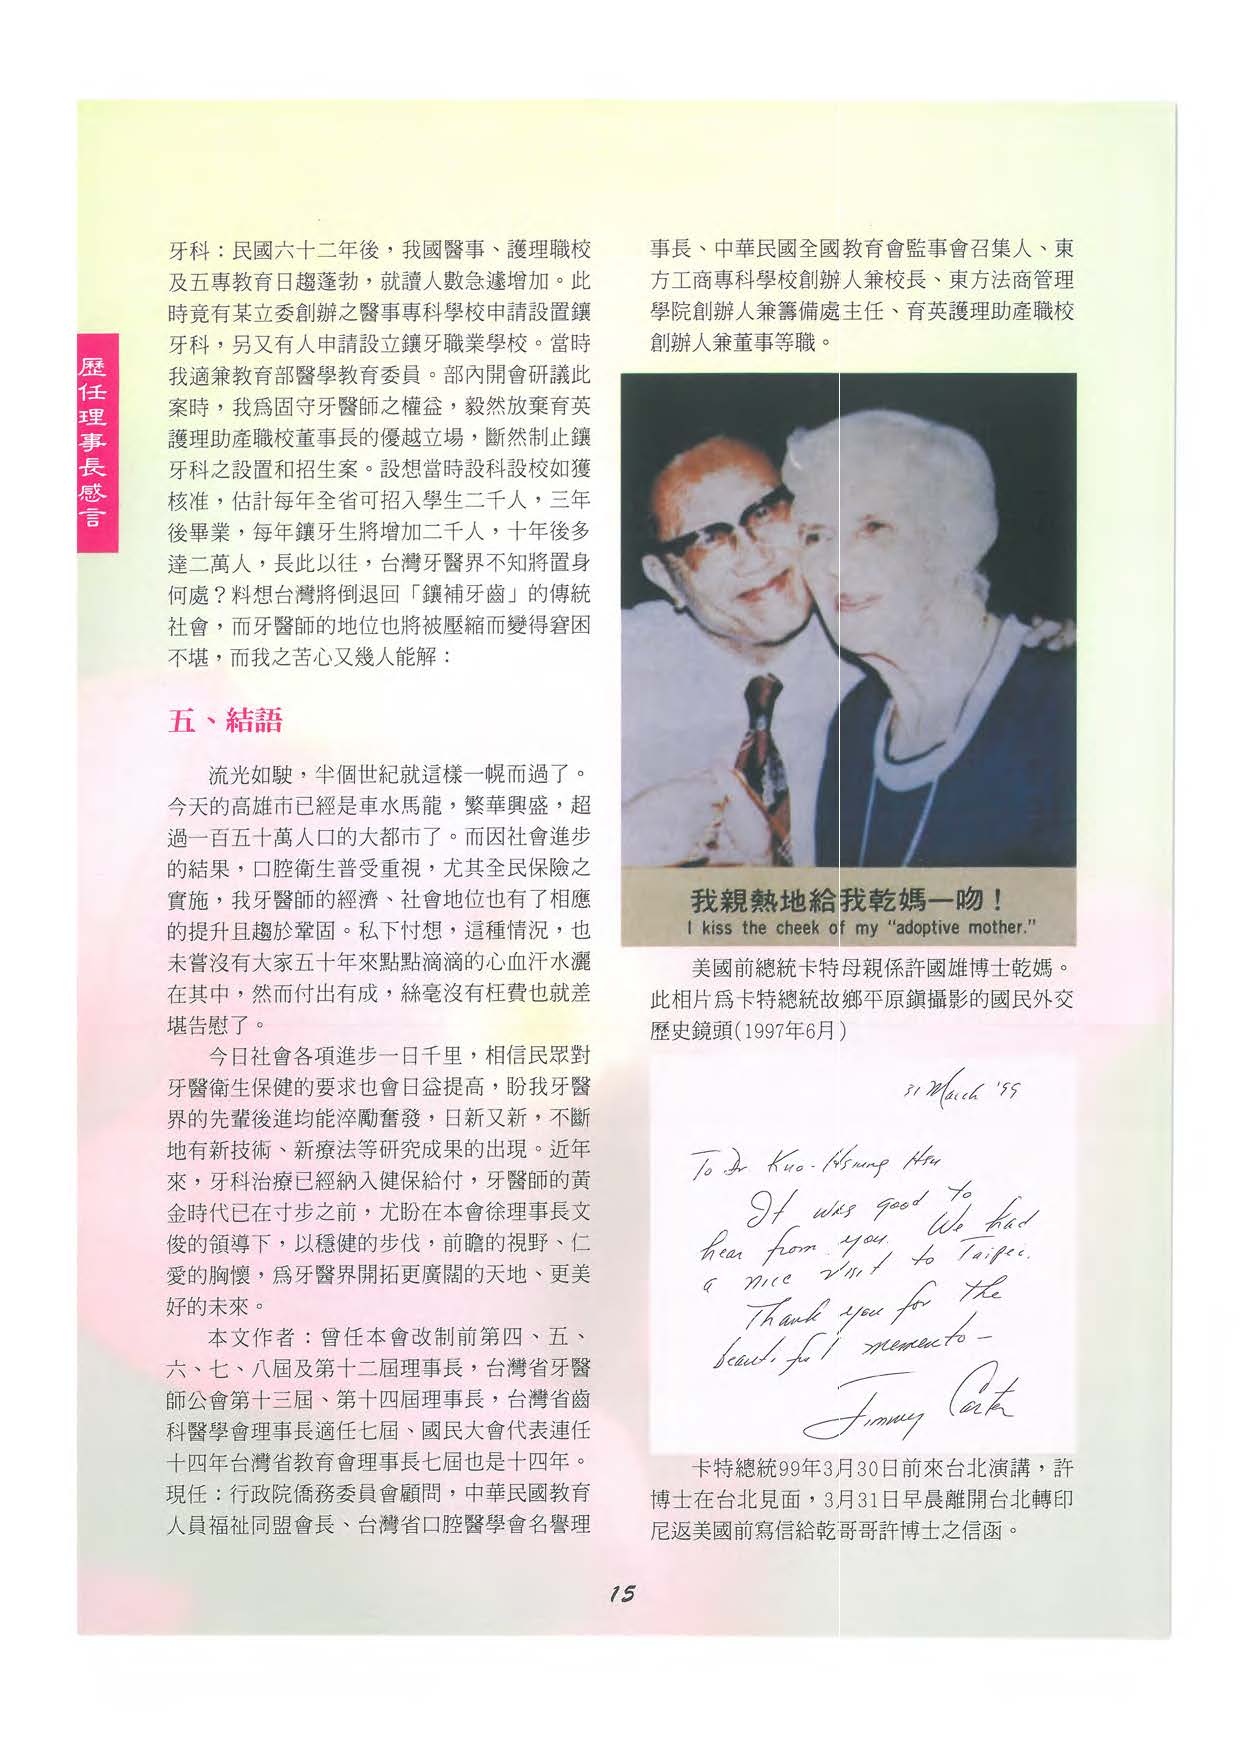 歷任理事長感言
牙科：民國六十二年後，我國醫事、護理職校
及五專教育日趨蓬勃，就讀人數急遽增加。此
時竟有某立委創辦之醫事專科學校申請設置鑲
牙科，另又有人申請設立鑲牙職業學校。當時
我適兼教育部醫學教育委員。部內開會研議此
案時，我爲固守牙醫師之權益，毅然放棄育英
護理助產職校董事長的優越立場，斷然制止鑲
牙科之設置和招生案。設想當時設科設校如獲
核准，估計每年全省可招入學生二千人，三年
後畢業，每年鑲牙生將增加二千人，十年後多
達二萬人，長此以往，台灣牙醫界不知將置身
何處？料想台灣將倒退回「鑲補牙齒」的傳統
社會，而牙醫師的地位也將被壓縮而變得窘困
不堪，而我之苦心又幾人能解：
五、結語
流光如駛，半個世紀就這樣一幌而過了。
今天的高雄市已經是車水馬龍，繁華興盛，超
過一百五十萬人口的大都市了。而因社會進步
的結果，口腔衛生普受重視，尤其全民保險之
實施，我牙醫師的經濟、社會地位也有了相應
的提升且趨於鞏固。私下忖想，這種情況，也
未嘗沒有大家五十年來點點滴滴的心血汗水灑
在其中，然而付出有成，絲毫沒有枉費也就差
堪告慰了。
今日社會各項進步一日千里，相信民眾對
牙醫衛生保健的要求也會日益提高，盼我牙醫
界的先輩後進均能淬勵奮發，日新又新，不斷
地有新技術、新療法等研究成果的出現。近年
來，牙科治療已經納入健保給付，牙醫師的黃
金時代已在寸步之前，尤盼在本會徐理事長文
俊的領導下，以穩健的步伐，前瞻的視野、仁
愛的胸懷，爲牙醫界開拓更廣闊的天地、更美
好的未來。
本文作者：曾任本會改制前第四、五、
六、七、八屆及第十二屆理事長，台灣省牙醫
師公會第十三屆、第十四屆理事長，台灣省齒
科醫學會理事長適任七屆、國民大會代表連任
十四年台灣省教育會理事長七屆也是十四年。
現任：行政院僑務委員會顧問，中華民國教育
人員福祉同盟會長、台灣省口腔醫學會名譽理
事長、中華民國全國教育會監事會召集人、東
方工商專科學校創辦人兼校長、東方法商管理
學院創辦人兼籌備處主任、育英護理助產職校
創辦人兼董事等職。
我親熱地給我乾媽一吻！
I kiss the cheek of my "adoptive mother."
美國前總統卡特母親係許國雄博士乾媽。
此相片爲卡特總統故鄉平原鎭攝影的國民外交
歷史鏡頭(1997年6月)
31 March '99
To Dr Kuo-Hsiung Hsu
It was good to
hear from you. We had
a nice visit to Taipei.
Thank you for the
beautiful memento -
Jimmy Carter
卡特總統99年3月30日前來台北演講，許
博士在台北見面，3月31日早晨離開台北轉印
尼返美國前寫信給乾哥哥許博士之信函。
15